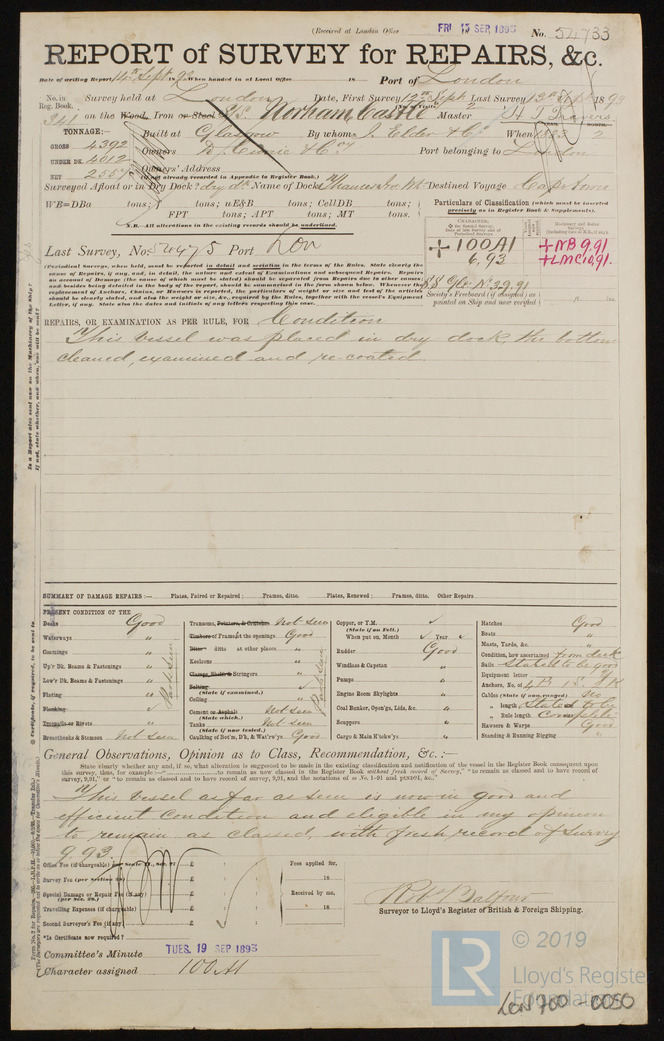 (Received at London Office FRI 15 SEP 1893 No. 54733
REPORT of SURVEY for REPAIRS, &c.
Date of writing Report 14th Sept 1893 When handed in at Local Office 18 Port of London
No. in Reg. Book. Survey held at London Date, First Survey 12th Sept Last Survey 13th Sept 1893
341 on the Wood, Iron or Steel S.S. Norham Castle Master H J Travers
TONNAGE:— Built at Glasgow By whom J. Elder & Co When 1883 2
GROSS 4392 Owners D. Currie & Coy Port belonging to London
UNDER DK. 4012 Owners' Address
NET (if not already recorded in Appendix to Register Book.)
Surveyed Afloat or in Dry Dock? dry dk Name of Dock Destined Voyage Cape Town
WB=DBa tons; f tons; uE&B tons; CellDB tons;
FPT tons; APT tons; MT tons.
N.B.—All alterations in the existing records should be underlined.
Particulars of Classification (which must be inserted precisely as in Register Book & Supplements).
CHARACTER.
+100A1 +NB 9.91
6.93 +LMC 10.91
Last Survey, No. 52475 Port Lon
(Periodical Surveys, when held, must be reported in detail and seriatim in the terms of the Rules. State clearly the
cause of Repairs, if any, and, in detail, the nature and extent of Examinations and subsequent Repairs. Repairs
on account of Damage (the cause of which must be stated) should be separated from Repairs due to other causes;
and besides being detailed in the body of the report, should be summarised in the form shown below. Whenever the
replacement of Anchors, Chains, or Hawsers is reported, the particulars of weight or size and test of the articles
should be clearly stated, and also the weight or size, &c., required by the Rules, together with the vessel's Equipment
Letter, if any. State also the dates and initials of any letters respecting this case.
Society's Freeboard (if assigned) as
painted on Ship and now verified
REPAIRS, OR EXAMINATION AS PER RULE, FOR Condition
This vessel was placed in dry dock the bottom
cleaned, examined and re-coated.
Is a Report also sent now on the Machinery of the Ship?
If not, state whether, and when, one will be sent?
SUMMARY OF DAMAGE REPAIRS:— Plates, Faired or Repaired; Frames, ditto. Plates, Renewed; Frames, ditto. Other Repairs
PRESENT CONDITION OF THE
Decks Good
Waterways "
Coamings "
Up'r Dk. Beams & Fastenings "
Low'r Dk. Beams & Fastenings "
Plating "
Planking
Treenails or Rivets "
Breasthooks & Stemson Not seen
Transoms, Pointers, & Crutches Not seen
Timbers or Frames at the openings Good
Ditto ditto at other places "
Keelsons "
Clamps, Shelfs & Stringers "
Salting
(State if examined.)
Ceiling
Cement or Asphalt Not seen
(State which.)
Tanks Not seen
(State if now tested.)
Caulking of Bot'm, D'k, & Wat'rw'ys Good
Copper, or Y.M.
(State if on Felt.)
When put on, Month Year
Rudder Good
Windlass & Capstan "
Pumps "
Engine Room Skylights "
Coal Bunker, Open'gs, Lids, &c. "
Scuppers "
Cargo & Main H'tchw'ys "
Hatches Good
Boats "
Masts, Yards, &c. "
Condition, how ascertained from deck
Sails Stated to be good
Equipment
Anchors, No. of 4B 1S 2K
Cables (State if now ranged) No
" length Stated to be
" Rule length Complete
Hawsers & Warps Good
Standing & Running Rigging "
General Observations, Opinion as to Class, Recommendation, &c.:—
State clearly whether any and, if so, what alteration is suggested to be made in the existing classification and notification of the vessel in the Register Book consequent upon
this survey, thus, for example:— "to remain as now classed in the Register Book without fresh record of Survey," "to remain as classed and to have record of
survey, 9,91," or "to remain as classed and to have record of survey, 9,91, and the notations of ss No. 1-91 and ptND91, &c."
This vessel as far as seen is now in good and
efficient condition and eligible in my opinion
to remain as classed, with fresh record of survey
9.93.
Office Fee (if chargeable) £ Fees applied for,
Survey Fee £ 18
Special Damage or Repair Fee (if any) £ Received by me,
Travelling Expenses (if chargeable) £ 18
Second Surveyor's Fee (if any) £
*Is Certificate now required?
Robt Balfour
Surveyor to Lloyd's Register of British & Foreign Shipping.
Committee's Minute TUES. 19 SEP 1893
Character assigned 100A1
LR © 2019
Lloyd's Register
Foundation
LON 700-0050